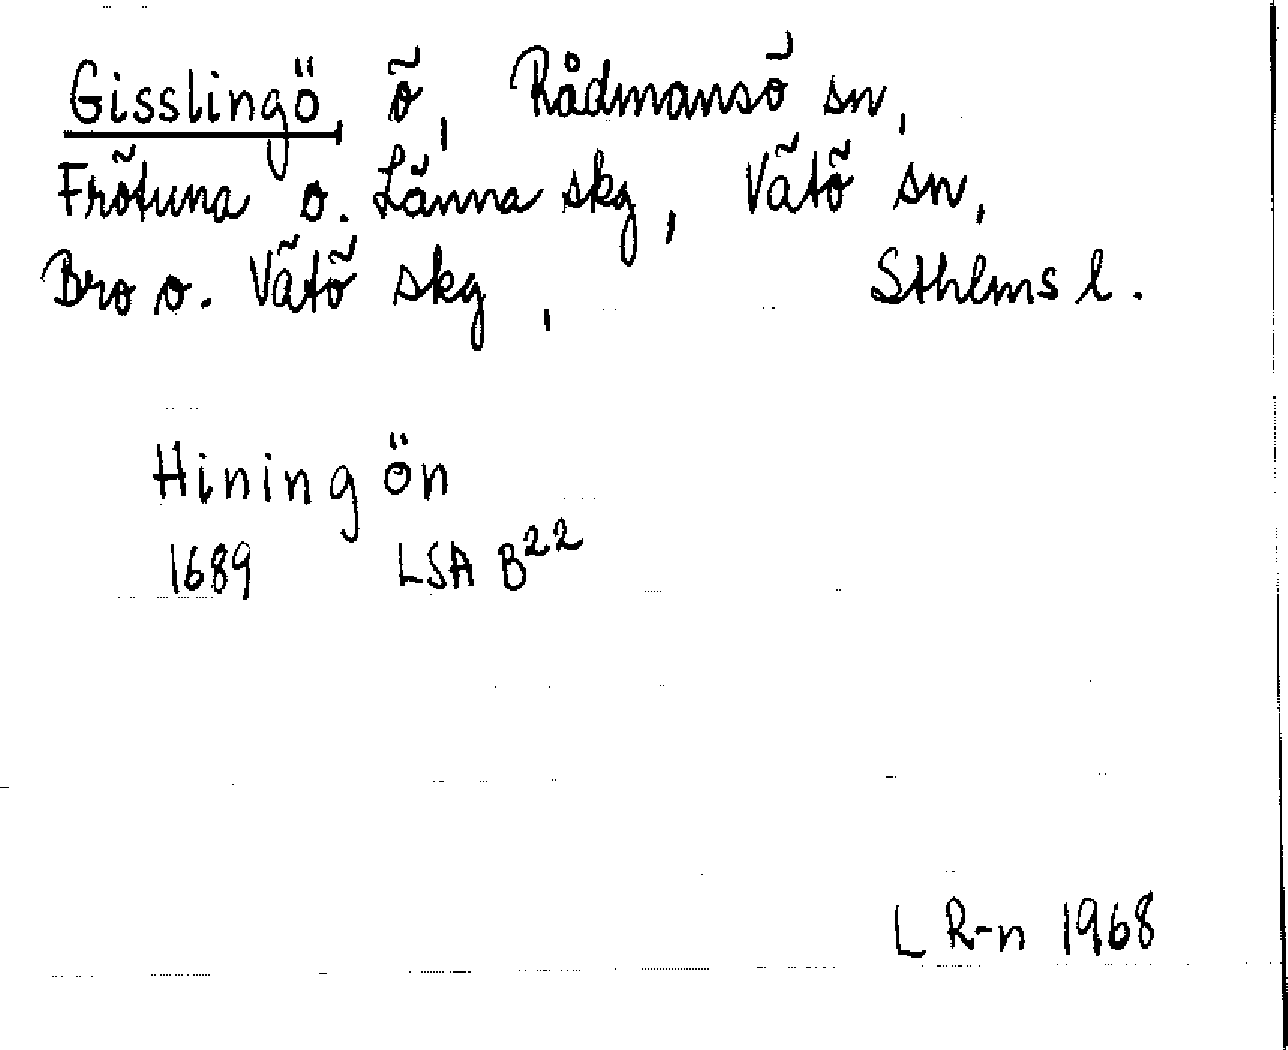 Gisslingö, ö, Rådmansö sn,
Frötuna o. Länna skg, Vätö sn,
Bro o. Vätö skg, Sthlms l.
Hining ön
1689 LSA B22
L R-n 1968